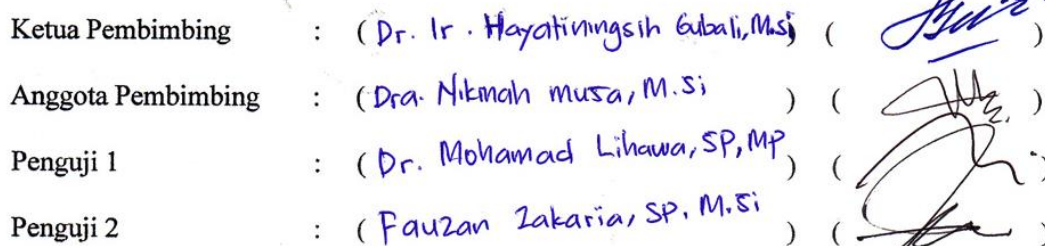 Ketua Pembimbing : (Dr. Ir. Hayatiningsih Gubali, M.si) ( )
Anggota Pembimbing : (Dra. Nikmah musa, M.Si ) ( )
Penguji 1 : (Dr. Mohamad Lihawa, SP, MP ) ( )
Penguji 2 : (Fauzan Zakaria, SP, M.Si ) ( )